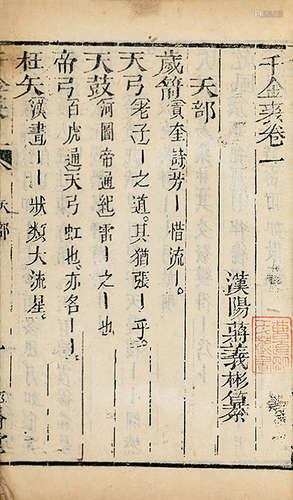 千金裘卷一
漢陽蔣義彬纂
天部
歲籥 貢奎詩芳丨惜流丨。
天弓 老子丨之道。其猶張丨乎。
天鼓 河圖帝通紀雷丨之丨也
帝弓 白虎通天弓虹也。亦名丨丨
枉矢 漢書丨丨狀類大流星。
天部